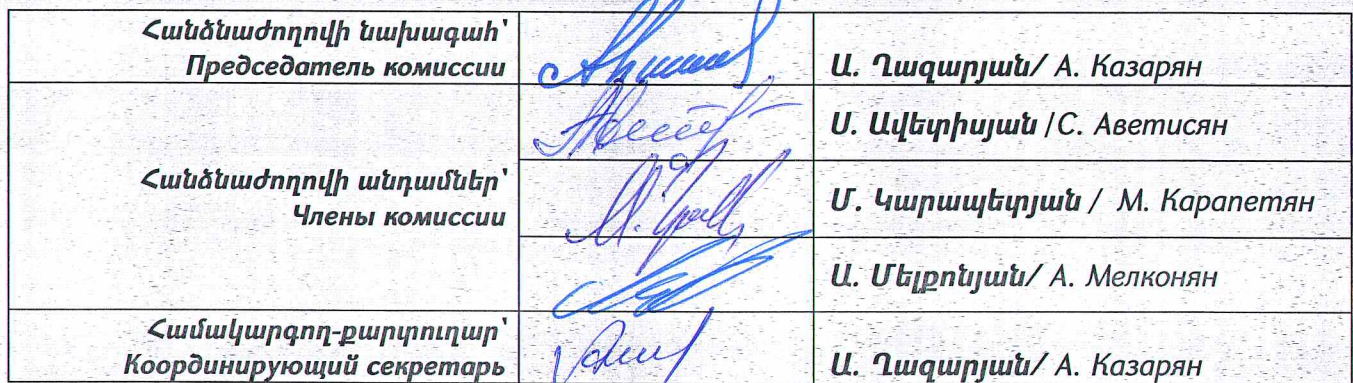 Հանձնաժողովի նախագահ՝
Председатель комиссии
Ա. Ղազարյան/ А. Казарян
Ս. Ավետիսյան /С. Аветисян
Հանձնաժողովի անդամներ՝
Члены комиссии
Մ. Կարապետյան / М. Карапетян
Ա. Մելքոնյան/ А. Мелконян
Համակարգող-քարտուղար՝
Координирующий секретарь
Ա. Ղազարյան/ А. Казарян